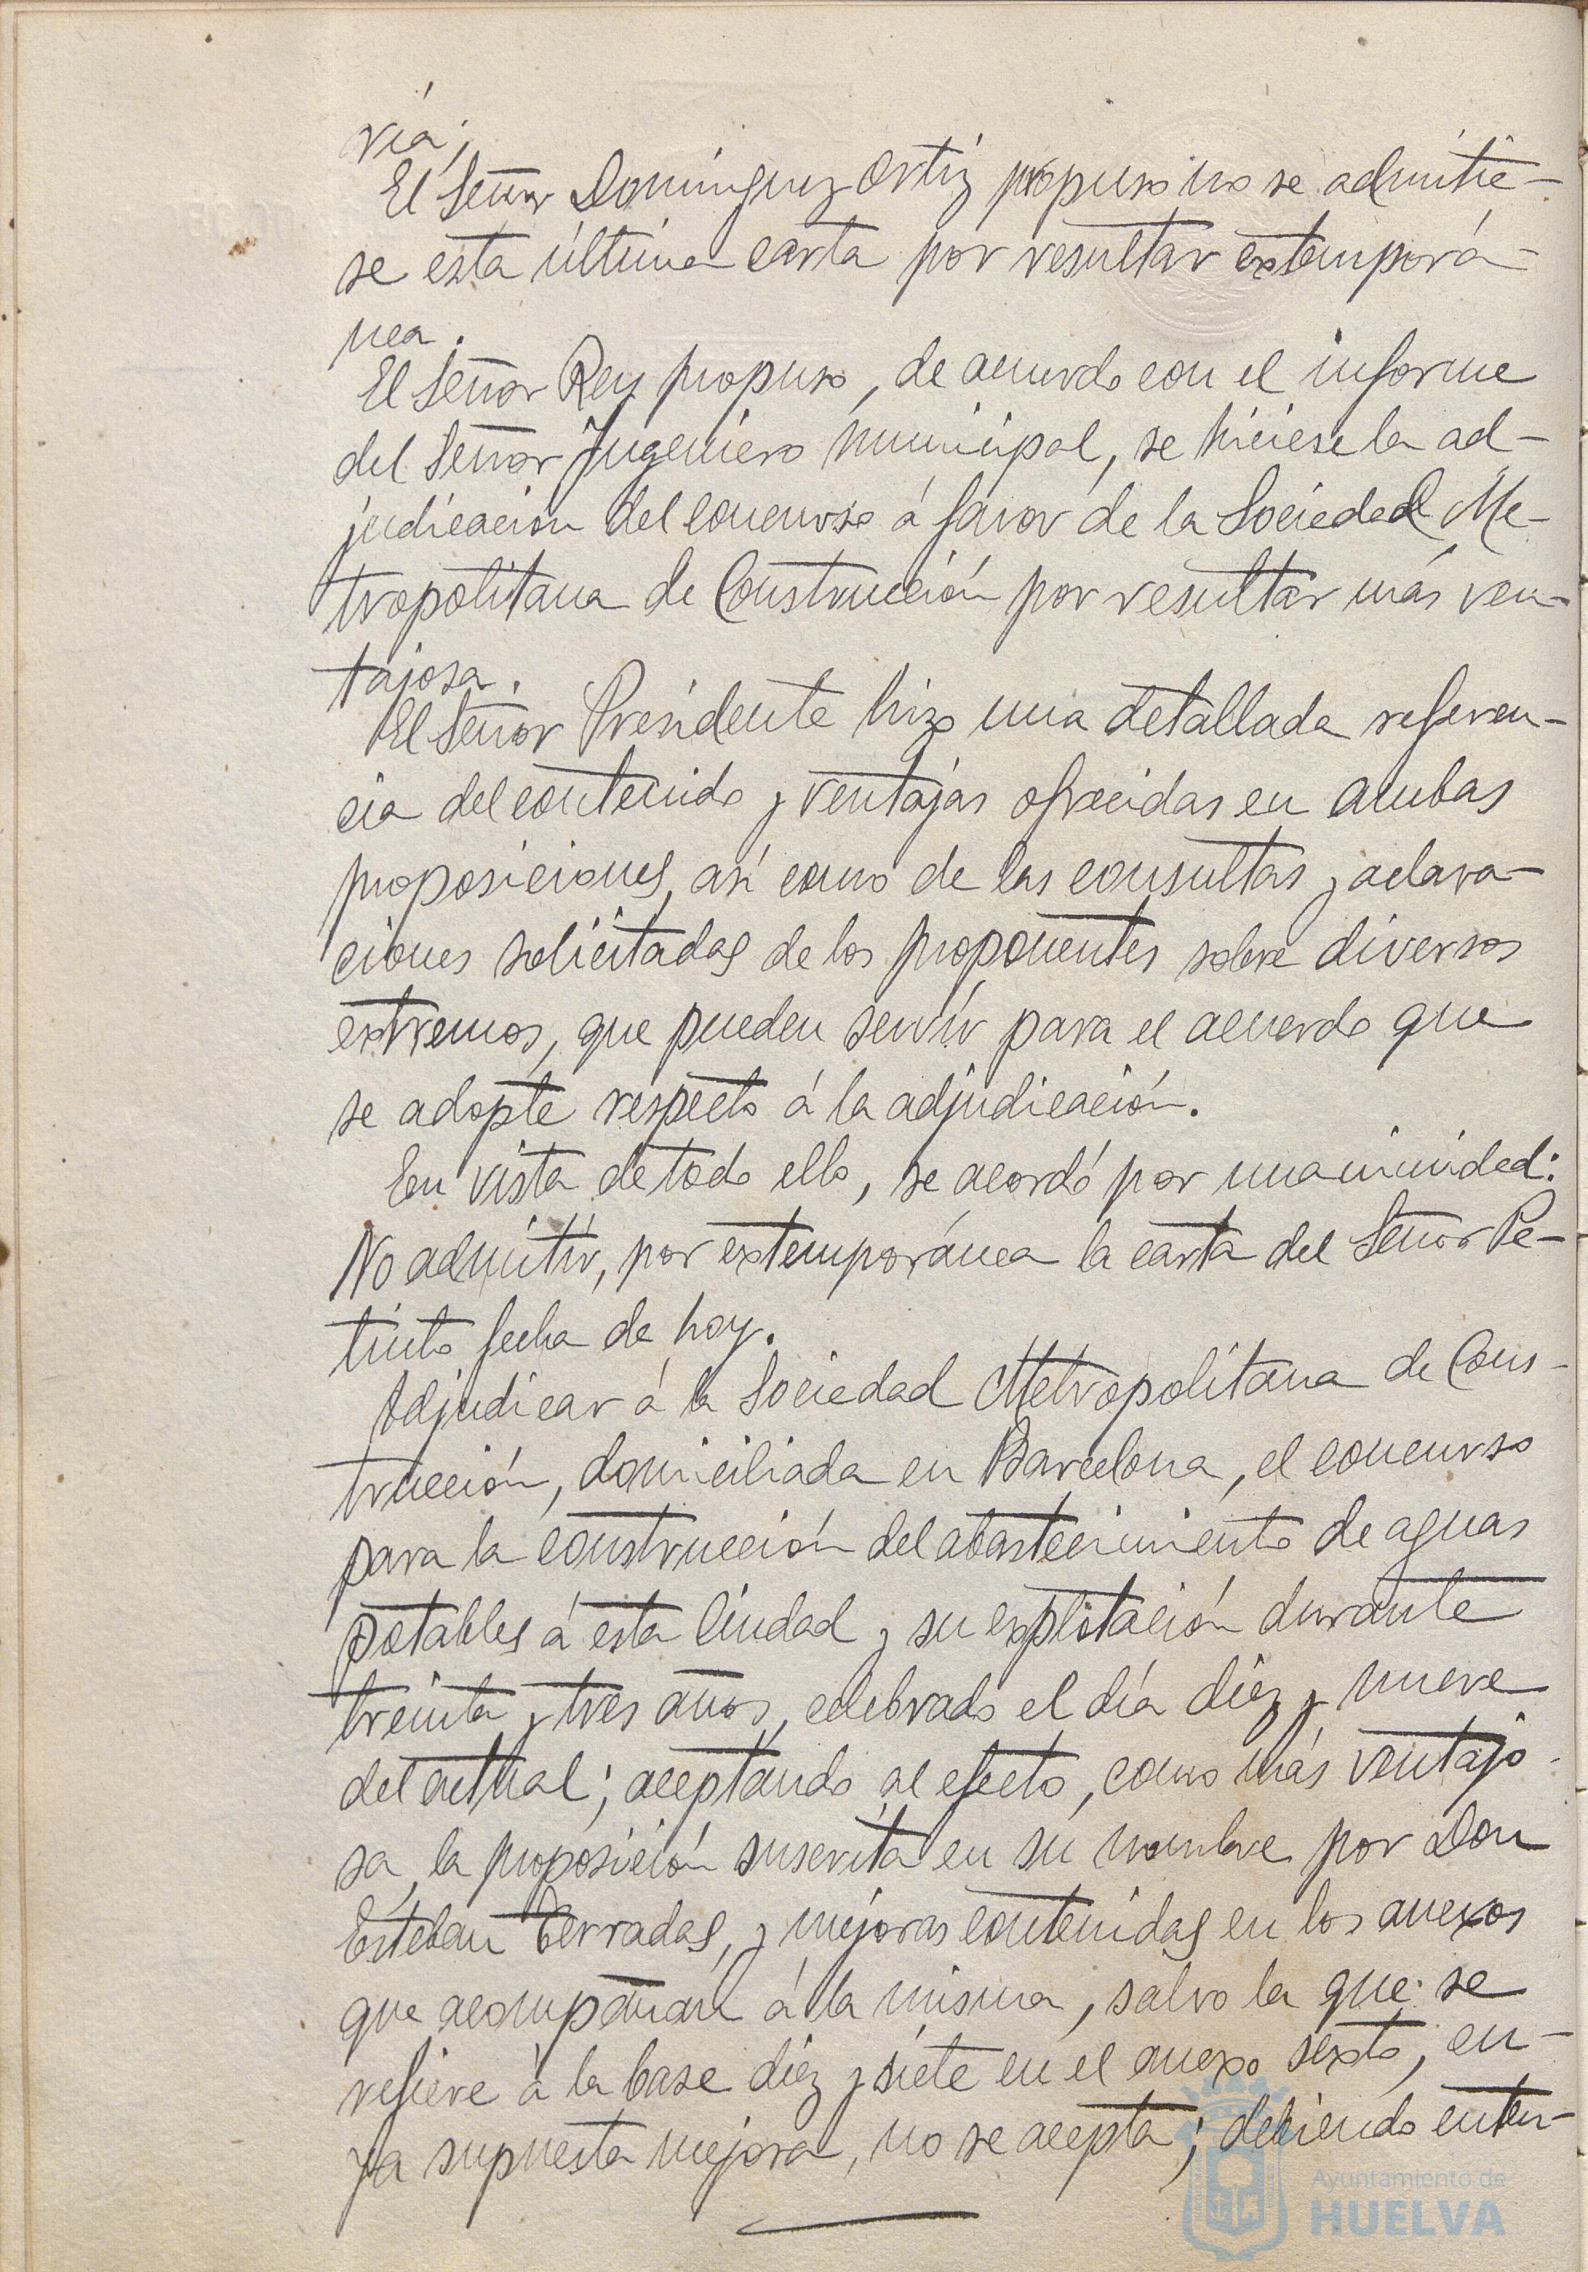 ria;
El Señor Domínguez Ortiz propuso no se admitie-
se esta última carta por resultar extemporá-
nea.
El Señor Rey propuso, de acuerdo con el informe
del Señor Ingeniero municipal, se hiciese la ad-
judicación del concurso á favor de la Sociedad Me-
tropolitana de Construcción por resultar más ven-
tajosa.
El Señor Presidente hizo una detallada referen-
cia del contenido y ventajas ofrecidas en ambas
proposiciones, así como de las consultas y aclara-
ciones solicitadas de los proponentes sobre diversos
extremos, que pueden servir para el acuerdo que
se adopte respecto á la adjudicación.
En vista de todo ello, se acordó por unanimidad:
No admitir, por extemporánea la carta del Señor Pe-
tinto fecha de hoy.
Adjudicar á la Sociedad Metropolitana de Cons-
trucción, domiciliada en Barcelona, el concurso
para la construcción del abastecimiento de aguas
potables á esta Ciudad y su explotación durante
treinta y tres años, celebrado el día diez y nueve
del actual; aceptando al efecto, como más ventajo-
sa, la proposición suscrita en su nombre por Don
Esteban Terradas, y mejoras contenidas en los anexos
que acompañan á la misma, salvo la que se
refiere á la base diez y siete en el anexo sexto, cu-
ya supuesta mejora, no se acepta; debiendo enten-
Ayuntamiento de
HUELVA